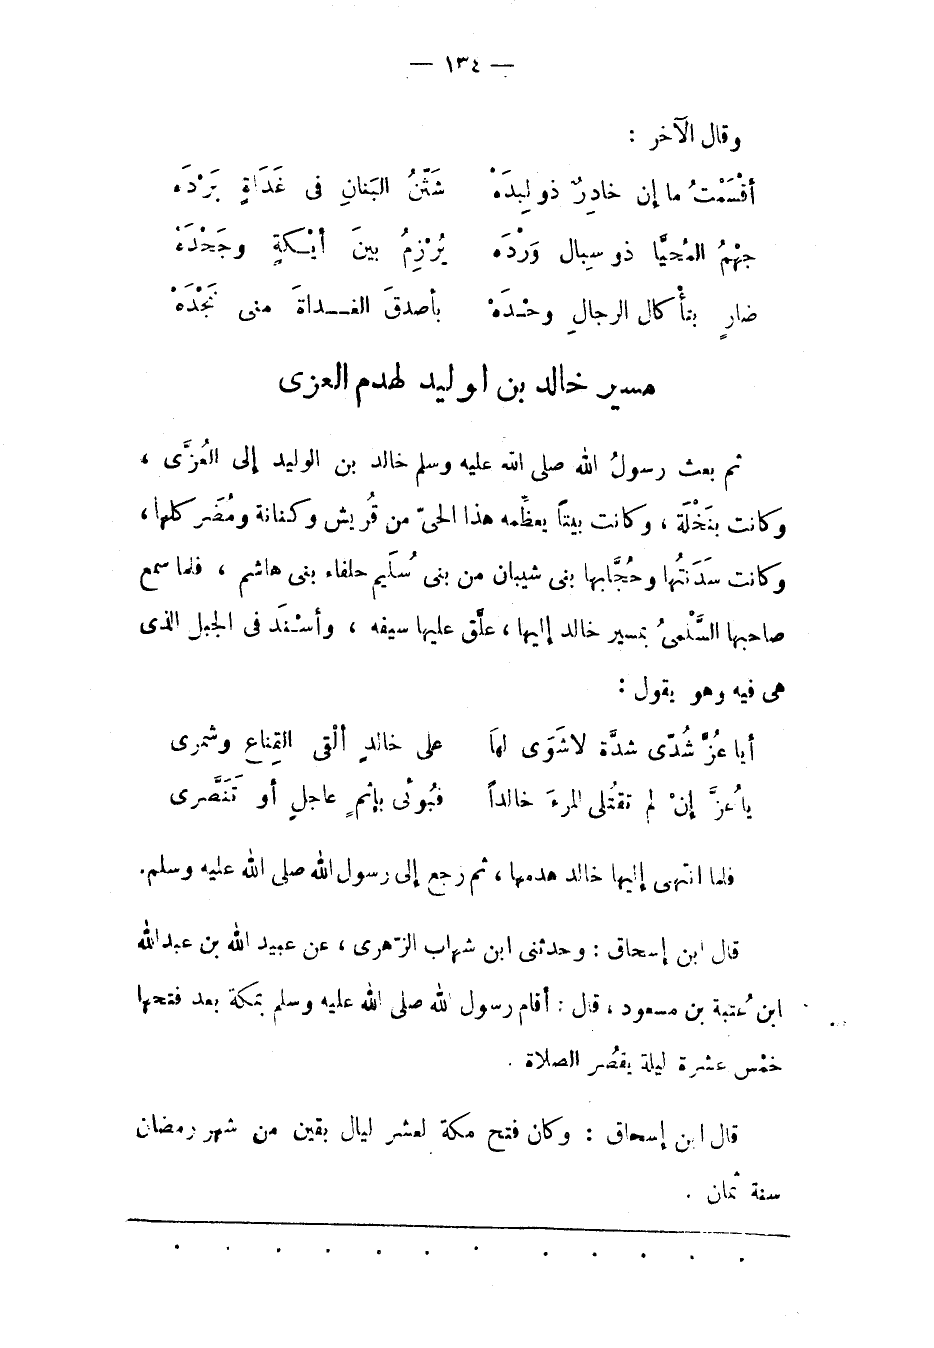 — ١٣٤ —
وقال الآخر :
أقْسَمْتُ ما إن خادِرٌ ذو لِبدَهْ شَثْنُ البَنانِ فى غَدَاةٍ بَرْدَه
جهْمُ المُحيَّا ذو سِبال وَرْدَه يُرْزِمُ بينَ أيْكةٍ وجَحْدَهْ
ضارٍ بتأْكال الرجالِ وحْدَهْ بأصدقَ الغداةَ منى نَجْدَهْ
مسير خالد بن الوليد لهدم العزى
ثم بعث رسولُ الله صلى الله عليه وسلم خالد بن الوليد إلى العُزَّى ،
وكانت بنَخْلَة ، وكانت بيتاً يعظِّمه هذا الحىّ من قُريش وكنانة ومُضَر كلها ،
وكانت سَدَنتُها وحُجَّابها بنى شيبان من بنى سُلَيم حلفاء بنى هاشم ، فلما سمع
صاحبها السَّلمىُ بمسير خالد إليها ، علَّق عليها سيفه ، وأسْنَد فى الجبل الذى
هى فيه وهو يقول :
أيا عُزَّ شُدّى شدَّة لا شَوَى لها على خالدٍ ألْقى القِناع وشمرى
يا عُزَّ إنْ لم تقتُلى المرءَ خالداً فبُوئى بإثمٍ عاجلٍ أو تَنَصَّرى
فلما انتهى إليها خالد هدمها ، ثم رجع إلى رسول الله صلى الله عليه وسلم .
قال ابن إسحاق : وحدثنى ابن شهاب الزّهرى ، عن عبيد الله بن عبدالله
ابن عُتبة بن مسعود ، قال : أقام رسول الله صلى الله عليه وسلم بمكة بعد فتحها
خمْس عشرة ليلة يقصُر الصلاة .
قال ابن إسحاق : وكان فتح مكة لعشر ليال بقين من شهر رمضان
سنة ثمان .